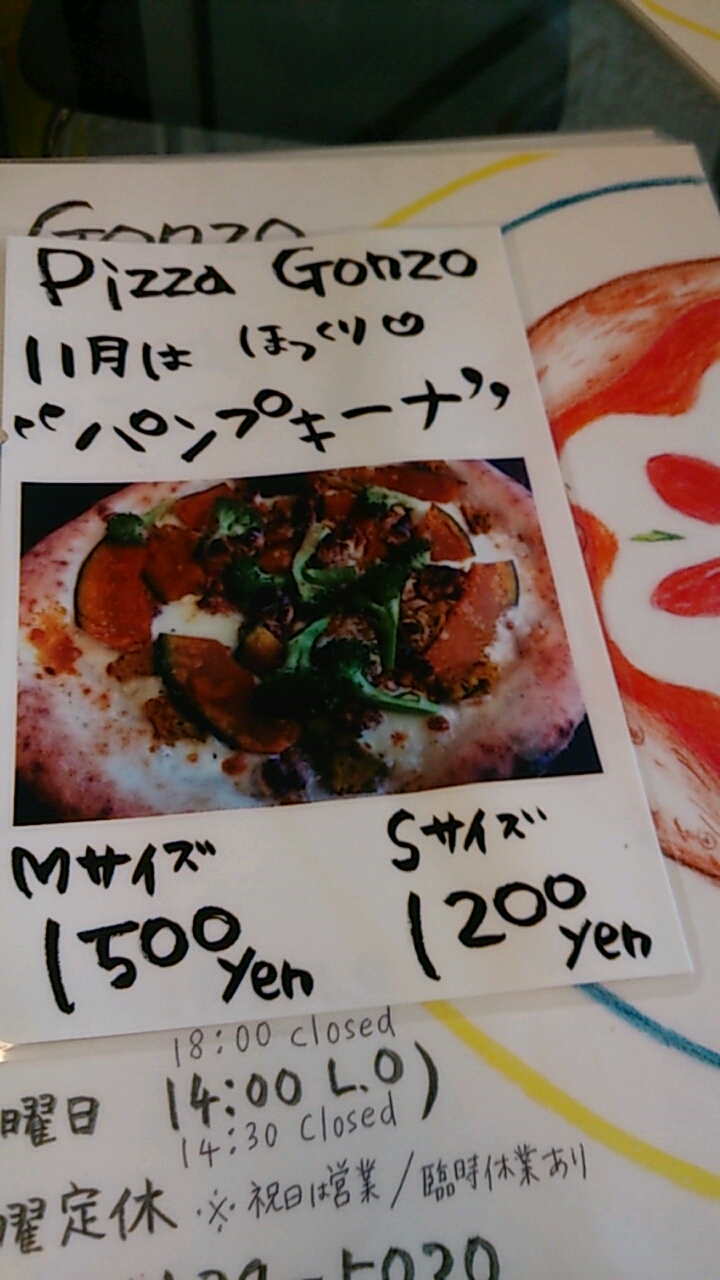 Gonzo
Pizza Gonzo
11月は ほっくり♡
“パンプキーナ”
Mサイズ Sサイズ
1500yen 1200yen
18:00 closed
曜日 14:00 L.O)
14:30 closed
曜定休 ※祝日は営業/臨時休業あり
-5020